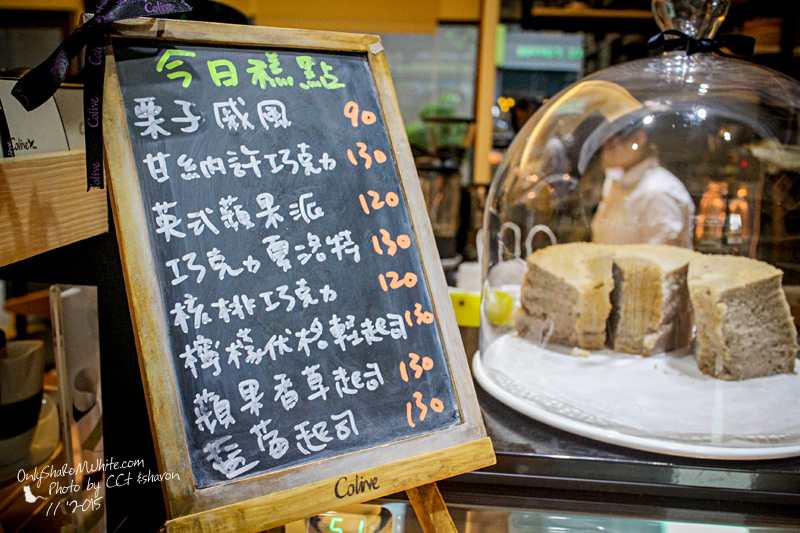 今日糕點
栗子威風 90
甘納許巧克力 130
英式蘋果派 120
巧克力夏洛特 130
核桃巧克力 120
檸檬伏格輕起司 130
蘋果香草起司 130
藍莓起司 130
Colive
Colive
Colive
Colive
OnlyShaRoMWhite.com
Photo by CCt &sharon
11 '2015